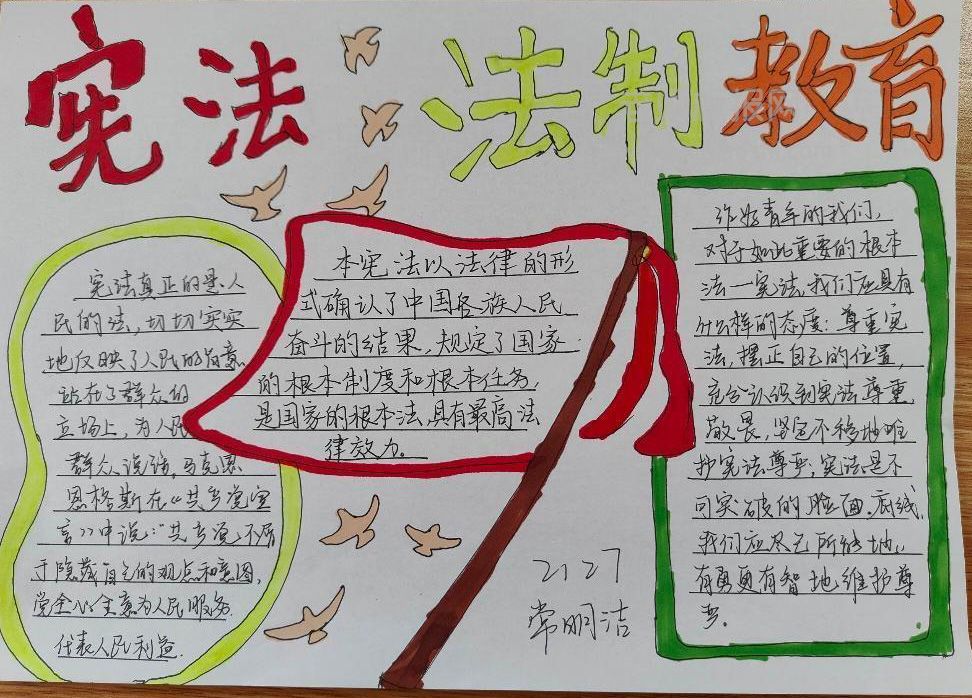 宪法 法制教育
宪法真正的是人
民的法，切切实实
地反映了人民的意
站在了群众的
立场上，为人民
群众说话，马克思
恩格斯在《共产党宣
言》中说：“共产党不屑
于隐藏自己的观点和意图，
党全心全意为人民服务
代表人民利益.
本宪法以法律的形
式确认了中国各族人民
奋斗的结果，规定了国家
的根本制度和根本任务，
是国家的根本法，具有最高法
律效力。
作为青年的我们，
对于如此重要的根本
法一宪法，我们应具有
什么样的态度：尊重宪
法，摆正自己的位置，
充分认识到宪法尊重
敬畏，坚定不移地维
护宪法尊严，宪法是不
可突破的脸面。底线，
我们应尽己所能地，
有勇更有智地维护尊
严。
2127
常明洁